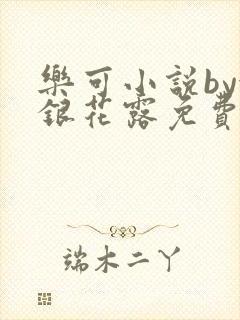 樂可小說by
銀花露免費
端木二丫